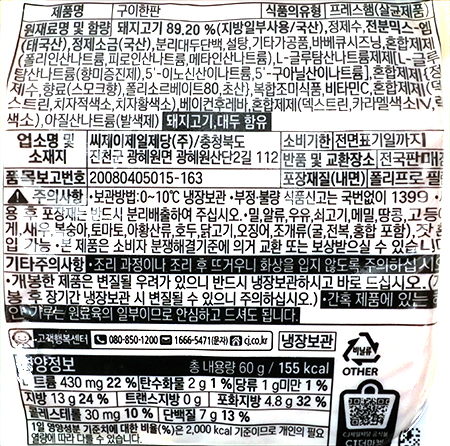 제품명 구이한판 식품의유형 프레스햄(살균제품)
원재료명 및 함량 돼지고기 89.20 %(지방일부사용/국산),정제수,전분믹스-엠
(태국산),정제소금(국산),분리대두단백,설탕,기타가공품,바베큐시즈닝,혼합제제
(폴리인산나트륨,피로인산나트륨,메타인산나트륨),L-글루탐산나트륨제제[L-글루
탐산나트륨(향미증진제),5'-이노신산이나트륨,5'-구아닐산이나트륨],혼합제제(정
제수,향료(스모크향),폴리소르베이트80,초산),복합조미식품,비타민C,혼합제제(덱
스트린,치자적색소,치자황색소),베이컨후레바,혼합제제(덱스트린,카라멜색소IV,락
색소),아질산나트륨(발색제) 돼지고기,대두 함유
업소명 및 소재지 씨제이제일제당(주)/충청북도 진천군 광혜원면 광혜원산단2길 112
소비기한 전면표기일까지
반품 및 교환장소 전국판매
품목보고번호 20080405015-163 포장재질(내면) 폴리프로필
주의사항 •보관방법:0~10℃ 냉장보관 •부정·불량 식품신고는 국번없이 1399
용 후 포장재는 반드시 분리배출하여 주십시오. •밀,알류,우유,쇠고기,메밀,땅콩,고등
게,새우,복숭아,토마토,아황산류,호두,닭고기,오징어,조개류(굴,전복,홍합 포함),잣
입 가능 •본 제품은 소비자 분쟁해결기준에 의거 교환 또는 보상받으실 수 있습니
기타주의사항 •조리 과정이나 조리 후 뜨거우니 화상을 입지 않도록 주의하십시
•개봉한 제품은 변질될 우려가 있으니 반드시 냉장보관하시고 바로 드십시오.
봉 후 장기간 냉장보관 시 변질될 수 있으니 주의하십시오.) •간혹 제품에 있는
가루는 원료육의 일부이므로 안심하고 드셔도 됩니다.
고객행복센터 080-850-1200 1666-5471(문자) cj.co.kr 냉장보관
영양정보 총 내용량 60 g / 155 kcal
나트륨 430 mg 22 % 탄수화물 2 g 1 % 당류 1 g미만 1 %
지방 13 g 24 % 트랜스지방 0 g 포화지방 4.8 g 32 %
콜레스테롤 30 mg 10 % 단백질 7 g 13 %
1일 영양성분 기준치에 대한 비율(%)은 2,000 kcal 기준이므로 개인의 필요
열량에 따라 다를 수 있습니다.
비닐류
OTHER
CJ더마켓